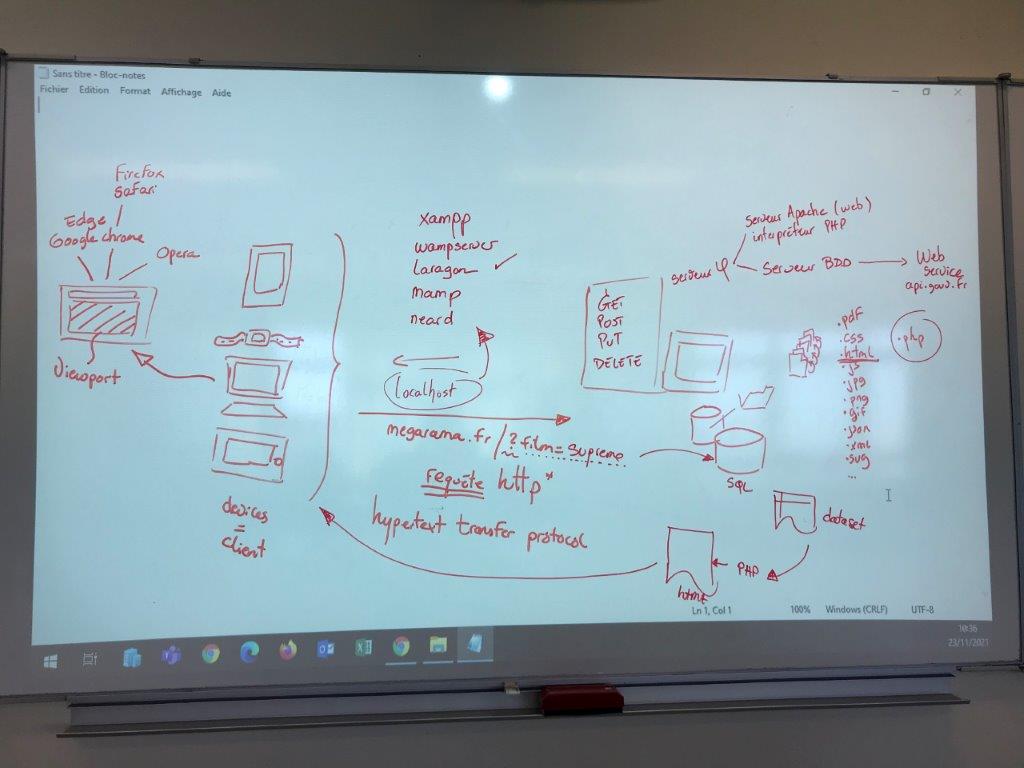 Sans titre - Bloc-notes
Fichier Edition Format Affichage Aide
Firefox
safari
Edge
Google chrome
Opera
Viewport
devices
=
client
xampp
wampserver
laragon ✓
mamp
neard
localhost
megarama.fr/?film=Supreme
requête http*
hypertext transfer protocol
GET
POST
PUT
DELETE
serveur
serveur Apache (web)
interpréteur PHP
Serveur BDD
Web
service
api.gouv.fr
.pdf
.css
.html
.js
.jpg
.png
.gif
.json
.xml
.svg
...
.php
SQL
dataset
PHP
html
Ln 1, Col 1 100% Windows (CRLF) UTF-8
10:36
23/11/2021